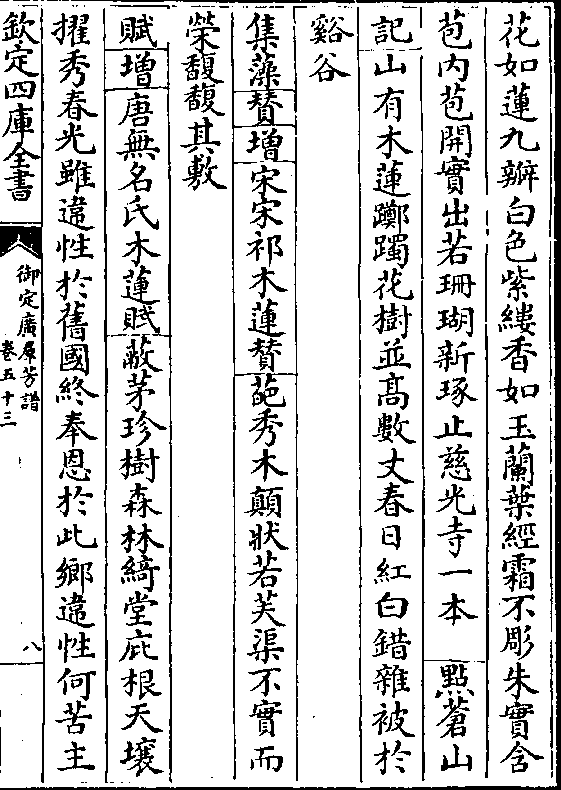 花如蓮九瓣白色紫縷香如玉蘭葉經霜不彫朱實含
苞内苞開實出若珊瑚新琢止慈光寺一本 點蒼山
記山有木蓮躑躅花樹並髙數丈春日紅白錯雜被於
谿谷
集藻贊增宋宋祁木蓮贊葩秀木顛狀若芙渠不實而
榮馥馥其敷
賦增唐無名氏木蓮賦蔽茅珍樹森林綺堂庇根天壤
擢秀春光雖違性於舊國終奉恩於此鄉違性何苦主
欽定四庫全書
御定廣羣芳譜
卷五十三
八